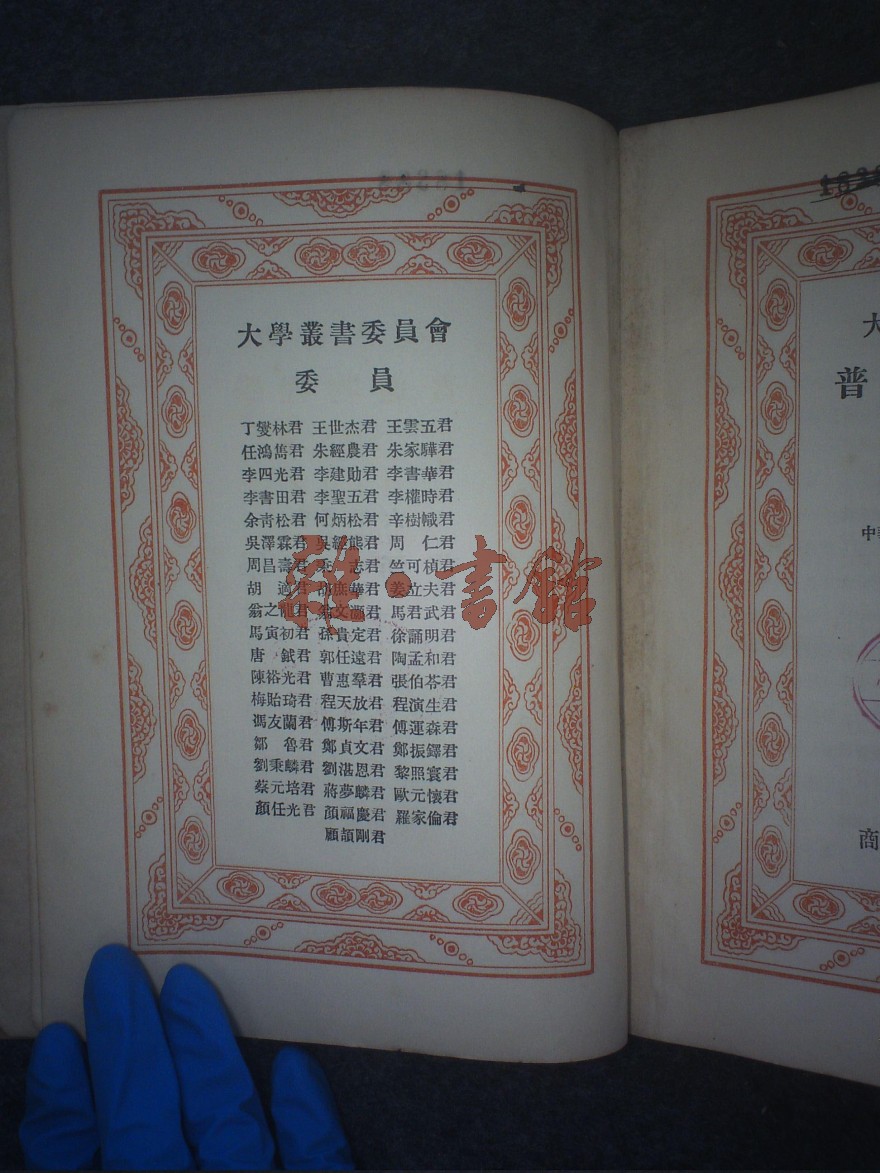 大學叢書委員會
委 員
丁燮林君 王世杰君 王雲五君
任鴻雋君 朱經農君 朱家驊君
李四光君 李建勛君 李書華君
李書田君 李聖五君 李權時君
余靑松君 何炳松君 辛樹幟君
吳澤霖君 吳經熊君 周 仁君
周昌壽君 秉 志君 竺可楨君
胡 適君 胡庶華君 姜立夫君
翁之龍君 翁文灝君 馬君武君
馬寅初君 孫貴定君 徐誦明君
唐 鉞君 郭任遠君 陶孟和君
陳裕光君 曹惠羣君 張伯苓君
梅貽琦君 程天放君 程演生君
馮友蘭君 傅斯年君 傅運森君
鄒 魯君 鄭貞文君 鄭振鐸君
劉秉麟君 劉湛恩君 黎照寰君
蔡元培君 蔣夢麟君 歐元懷君
顏任光君 顏福慶君 羅家倫君
顧頡剛君
雜·書館
大
普
商